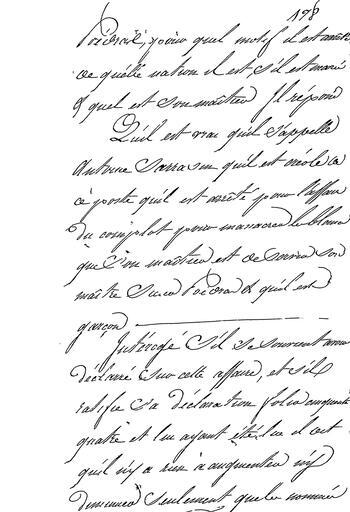 198
pour quel motif il est arrêté
de quelle nation il est, s'il est marié
& quel est son maître Il répond
Qu'il est vrai qu'il s'appelle
Antoine Sarrasin qu'il est créole de
ce poste qu'il est arrêté pour l'affaire
du complot pour massacrer les blancs
que son maître est
& qu'il est
garçon
Interogé s'il se souvient avoir
déclaré sur cette affaire, et s'il
ratifie sa déclaration folio cinquante
quatre et lui ayant été lue il dit
qu'il n'y a rien à augmenter ni y
diminuer seulement que le nommé